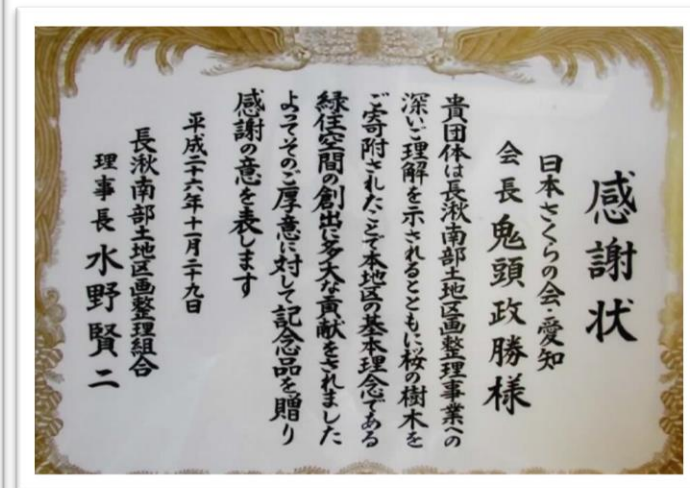 感謝状
日本さくらの会・愛知
会長 鬼頭政勝様
貴団体は長湫南部土地区画整理事業への
深いご理解を示されるとともに桜の樹木を
ご寄附されたことで本地区の基本理念である
緑住空間の創出に多大な貢献をされました
よってそのご厚意に対して記念品を贈り
感謝の意を表します
平成二十六年十一月二十九日
長湫南部土地区画整理組合
理事長 水野賢二